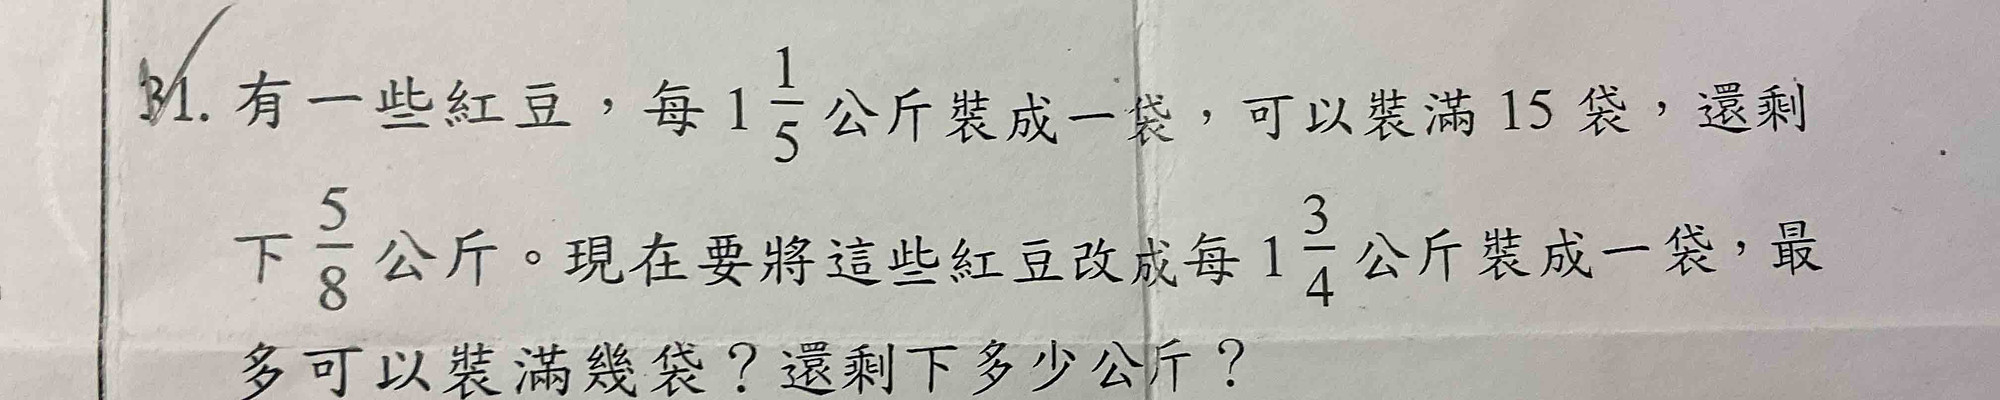 31. 有一些紅豆，每 1 1/5 公斤裝成一袋，可以裝滿 15 袋，還剩
下 5/8 公斤。現在要將這些紅豆改成每 1 3/4 公斤裝成一袋，最
多可以裝滿幾袋？還剩下多少公斤？